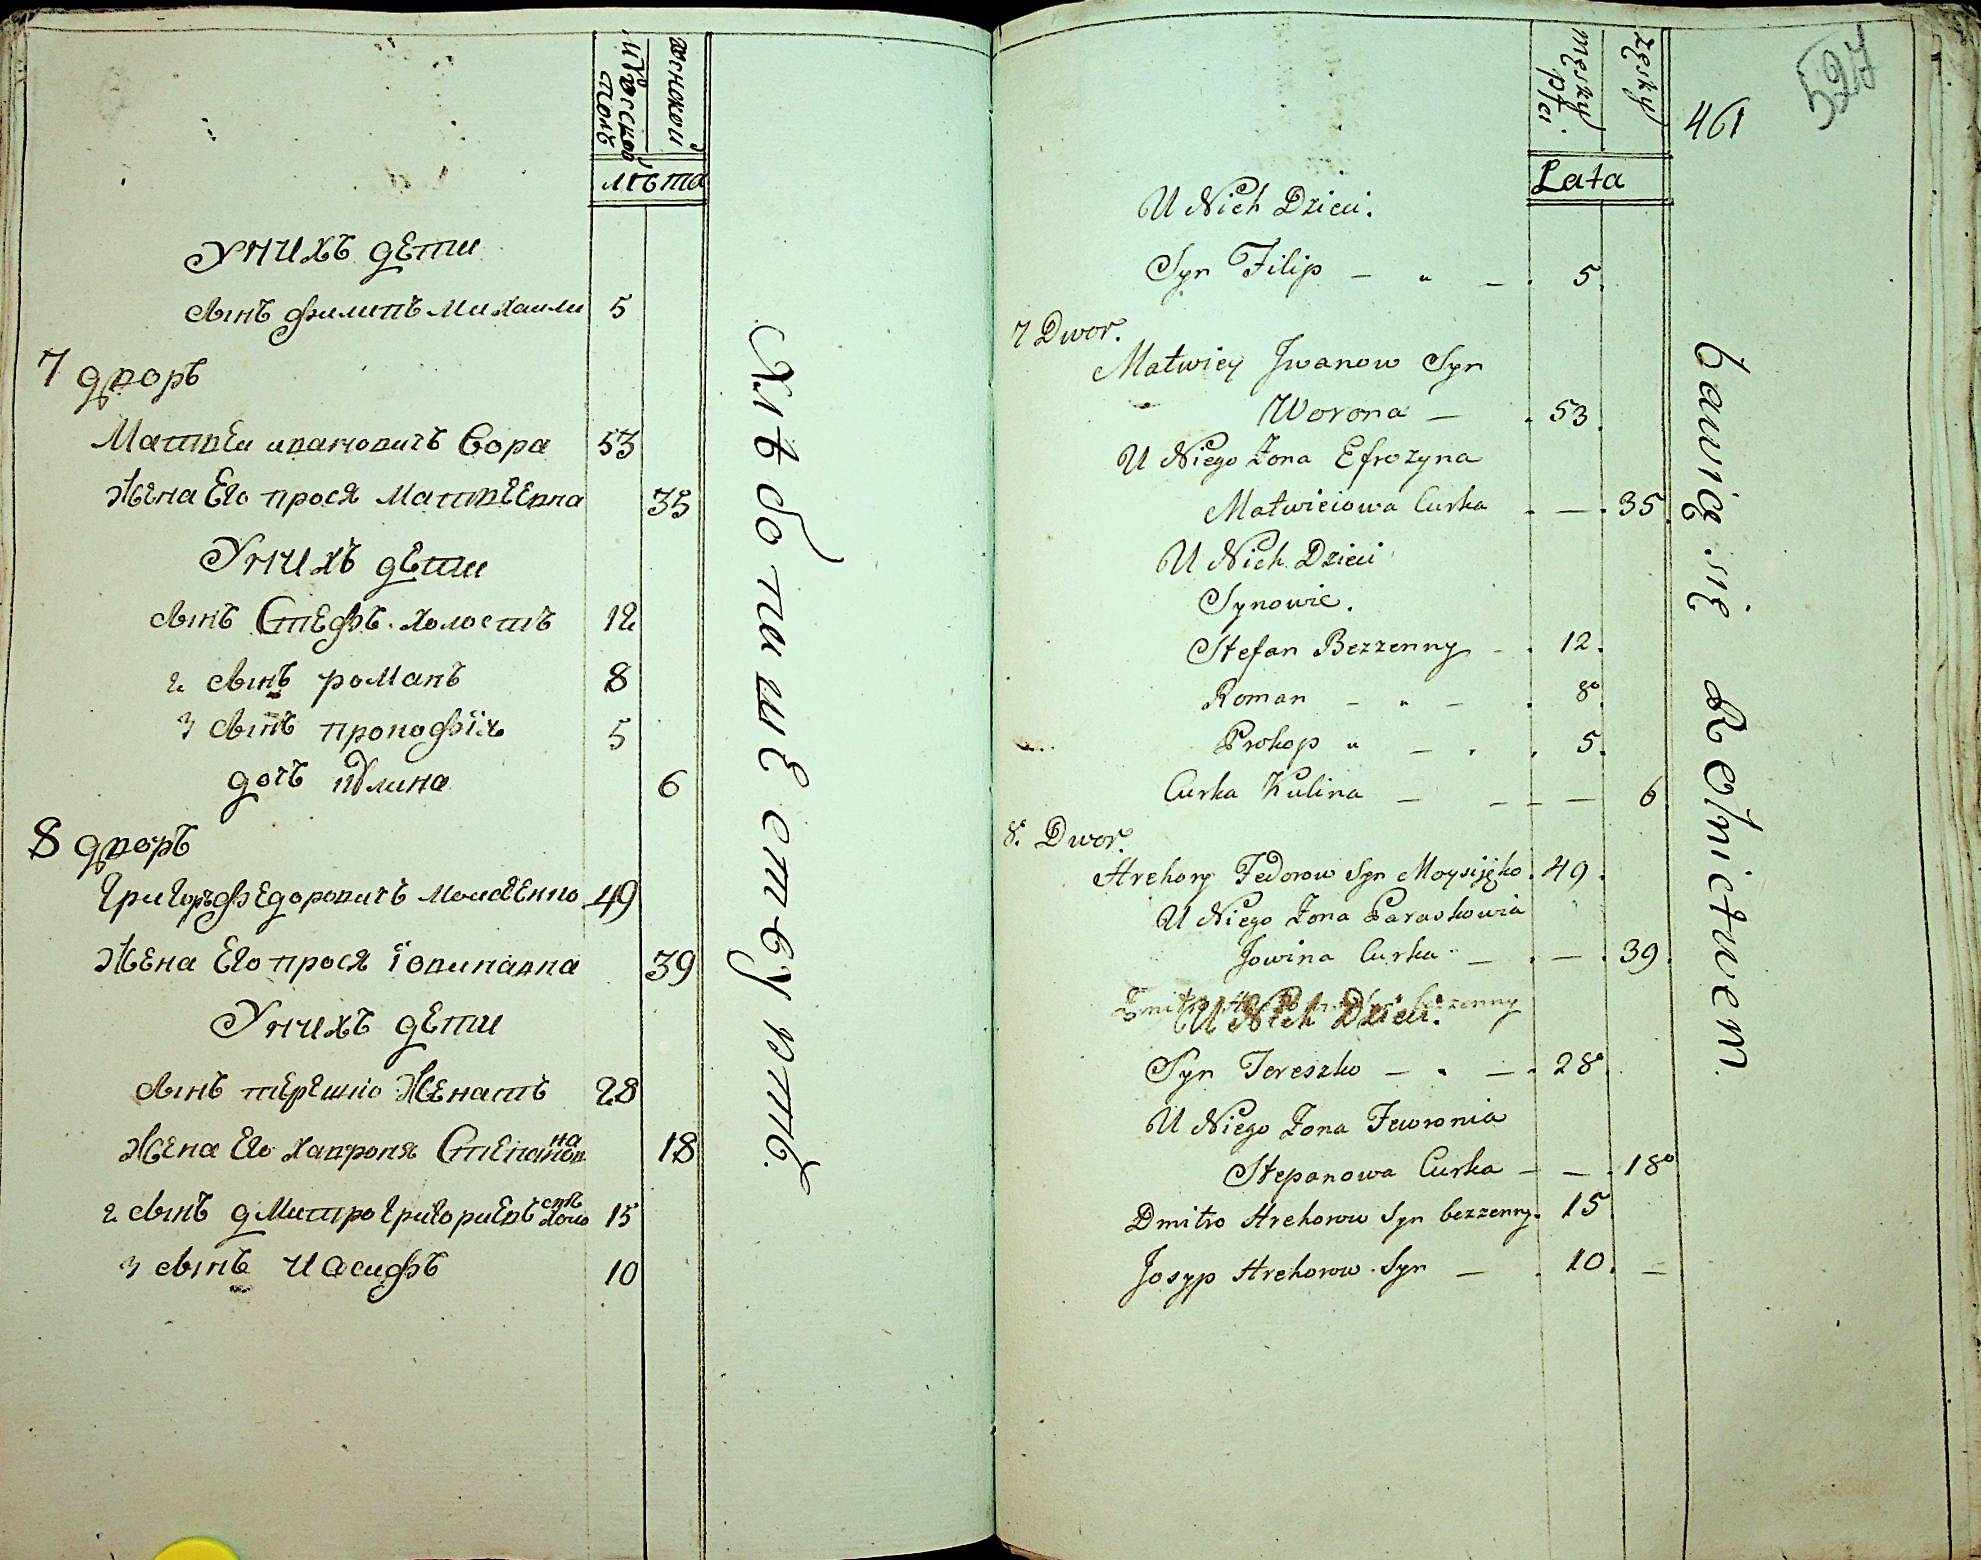 мужской
полъ
женской
лѣта
У нихъ дети
сынъ филипъ михаили 5
7 дворъ
Матвеи ивановичъ Вора 53
Жена Его прося Матвеевна 35
У нихъ дети
сынъ Стефъ. холостъ 12
2 сынъ романъ 8
3 сынъ прокофiй 5
дочь кулина 6
8 дворъ
Григорь федоровичъ Моисеенко 49
Жена Его прося iовиповна 39
У нихъ дети
сынъ терешко Женатъ 28
Жена Его хавроня Степановна 18
2 сынъ дмитро григориевъ холостъ 15
3 сынъ иосифъ 10
Хлѣбопашествують.
męsky płci
żęsky
Lata
461
527
U Nich Dzieci.
Syn Filip — " — 5.
7 Dwor.
Matwiey Jwanow Syn
Worona — 53.
U Niego Żona Efrozyna
Matwieiowa Curka — 35.
U Nich Dzieci
Synowie.
Stefan Bezzenny - 12.
Roman — " — 8.
Prokop " — 5.
Curka Kulina — — — — 6
8. Dwor.
Hrehory Fedorow Syn Moysijęko 49.
U Niego Żona Paraskowia
Jowina Curka — — 39.
U Nich Dzieci.
Syn Tereszko — " — 28
U Niego Żona Fewronia
Stepanowa Curka — — 18
Dmitro Hrehorow Syn bezzenny. 15
Josyp Hrehorow Syn — 10. —
bawię się Rolnictwem.